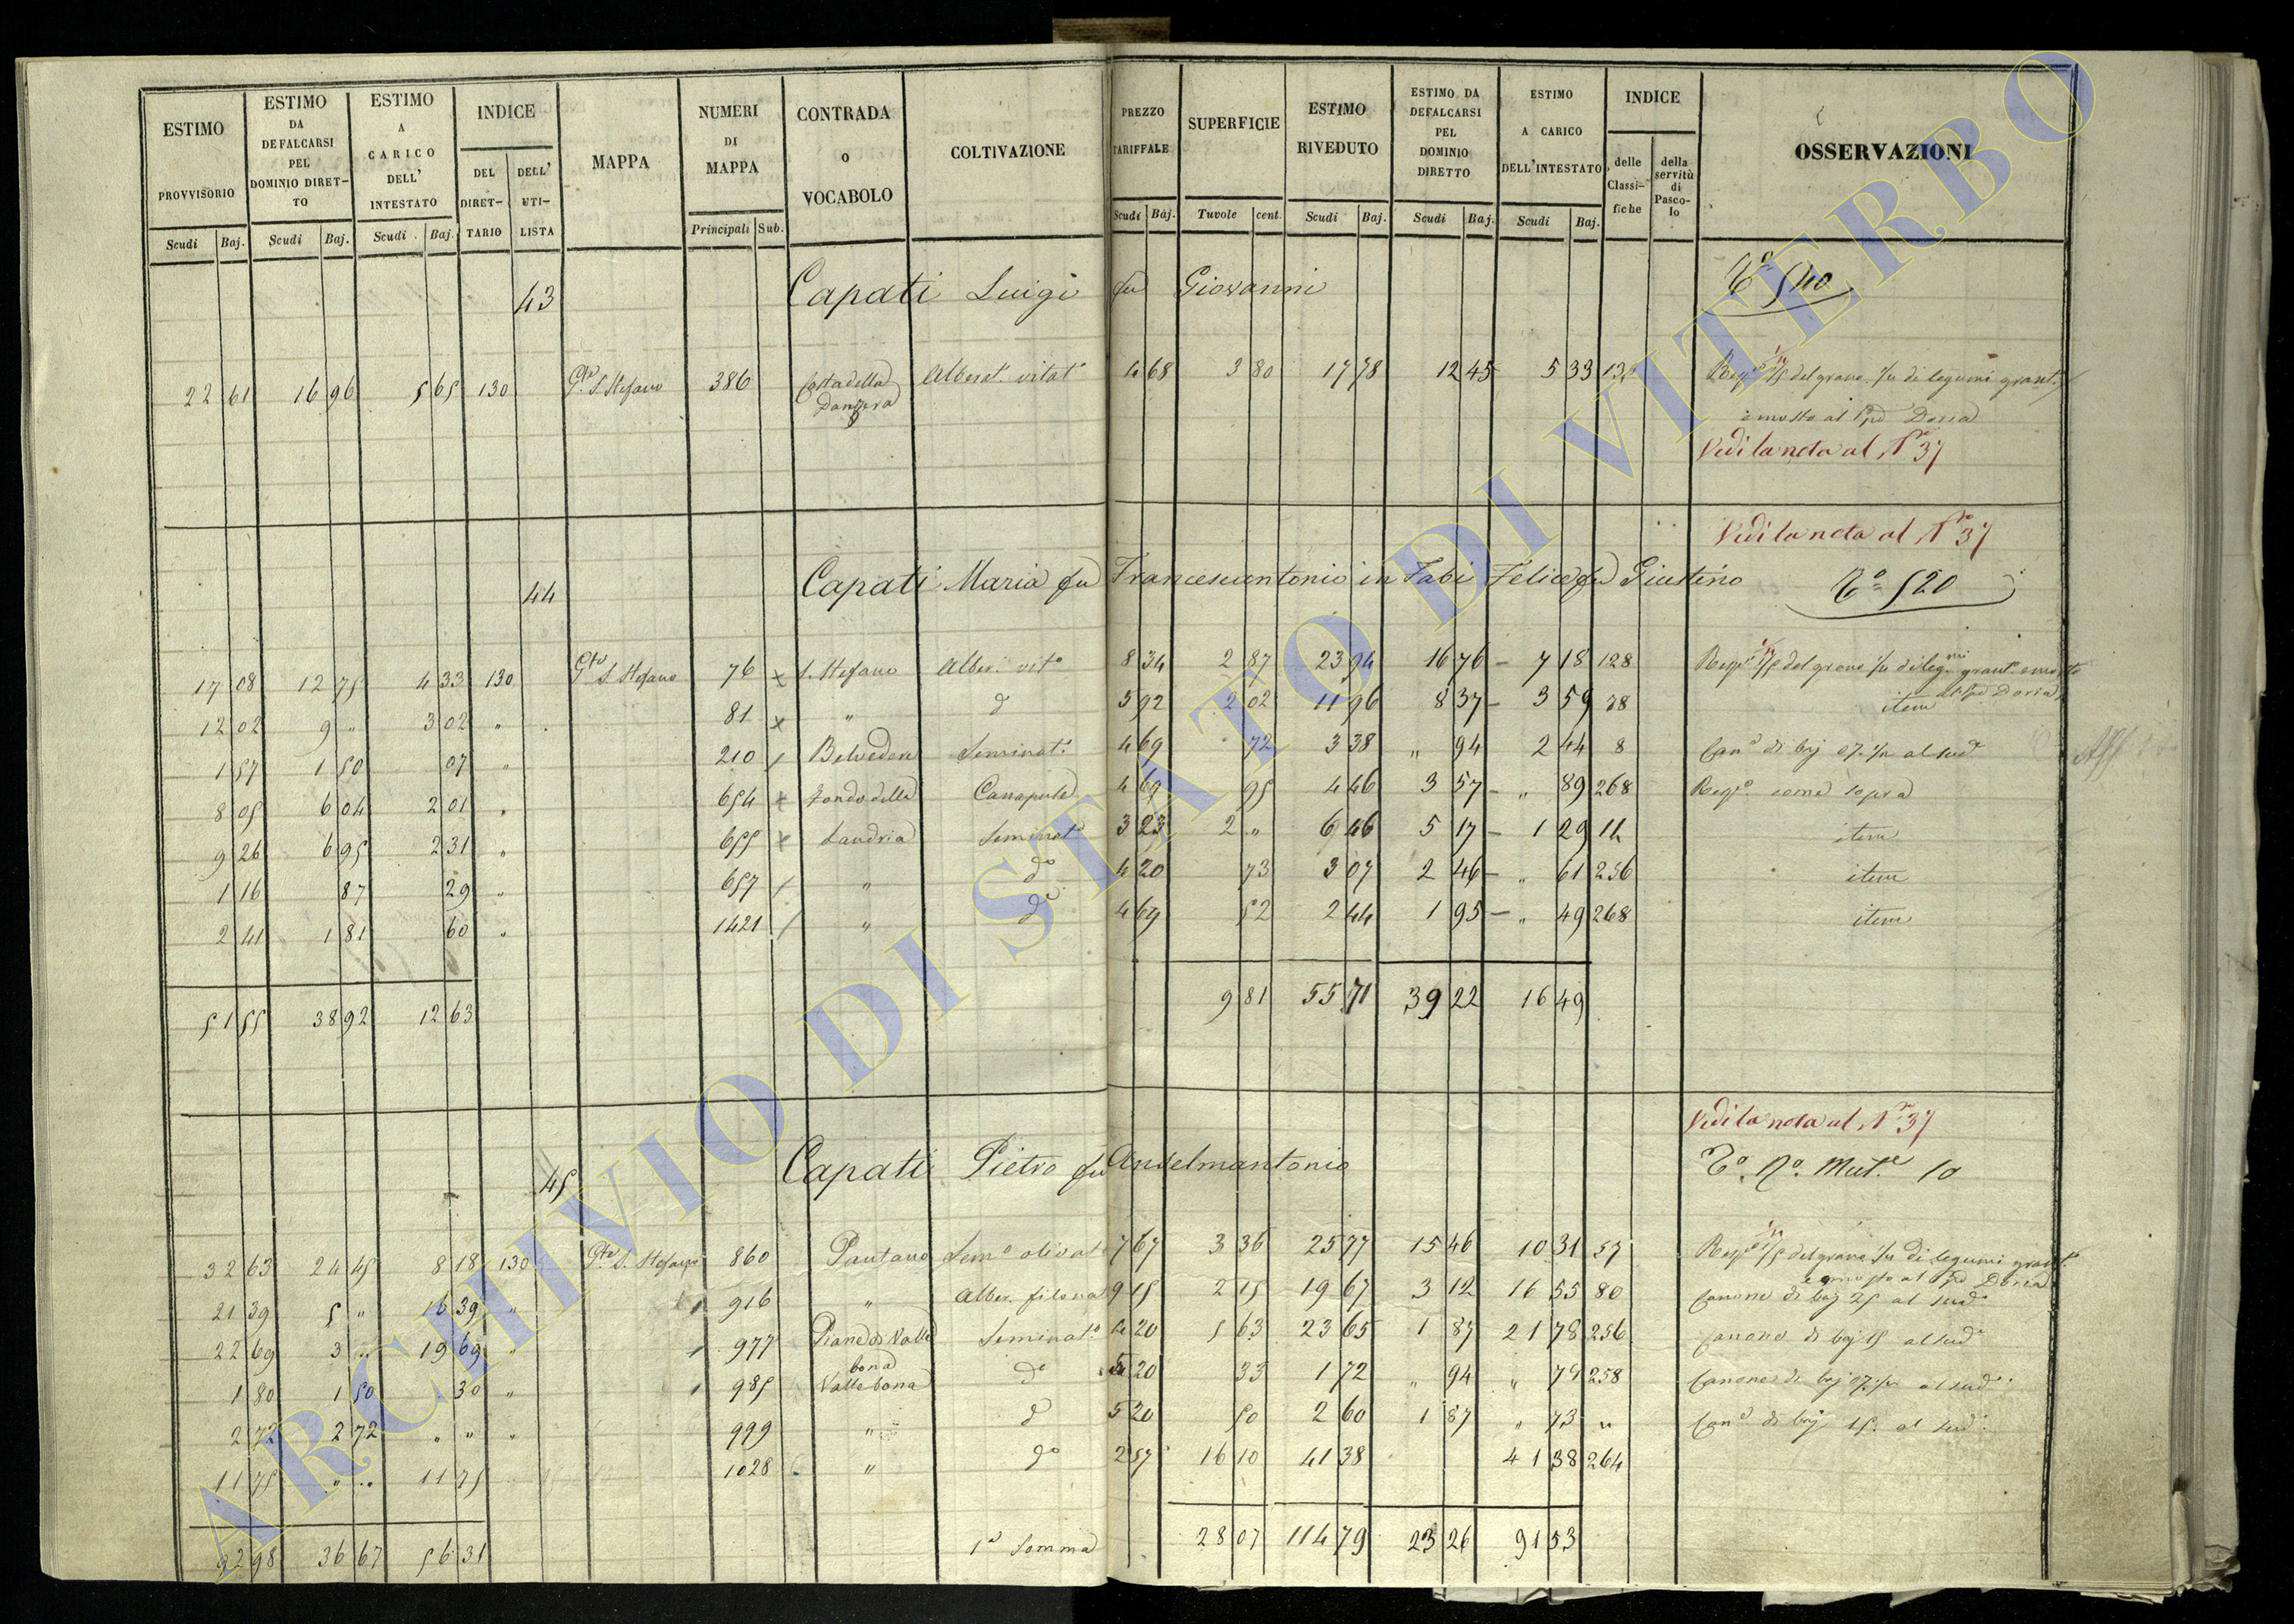 ESTIMO PROVVISORIO Scudi Baj.
ESTIMO DA DEFALCARSI PEL DOMINIO DIRET-TO Scudi Baj.
ESTIMO A CARICO DELL' INTESTATO Scudi Baj.
INDICE DEL DIRET-TARIO DELL' UTI-LISTA
MAPPA
NUMERI DI MAPPA Principali Sub.
CONTRADA O VOCABOLO
COLTIVAZIONE
PREZZO TARIFFALE Scudi Baj.
SUPERFICIE Tavole cent.
ESTIMO RIVEDUTO Scudi Baj.
ESTIMO DA DEFALCARSI PEL DOMINIO DIRETTO Scudi Baj.
ESTIMO A CARICO DELL'INTESTATO Scudi Baj.
INDICE delle Classi-fiche della servitù di Pasco-lo
OSSERVAZIONI
43 Capati Luigi fu Giovanni 540
22 61 16 96 5 65 130 S. Stefano 386 Costa della Alberat. vitat. 4 68 3 80 17 78 12 45 5 33 Resp. 1/5 del grano di legumi grant.
e mosto al Doria
Vedi la nota al N. 37
Vedi la nota al N. 37
44 Capati Maria fu Francescantonio in Fabi Felice fu Giustino 520
17 08 12 75 4 33 130 S. Stefano 76 x S. Stefano Alber. vit. 8 34 2 87 23 94 16 76 - 7 18 128 Resp. 1/5 del grano di leg. grant. e mosto
al Doria
12 02 9 " 3 02 " 81 x " d 5 92 2 02 11 96 8 37 - 3 59 38 item
1 57 1 50 07 " 210 / Belvedere Seminat. 4 69 72 3 38 " 94 2 44 8 Can. di baj 07 1/2 al sud.
8 05 6 04 2 01 " 654 x Fondo della Canapule 4 69 95 4 46 3 57 - " 89 268 Resp. come sopra
9 26 6 95 2 31 " 655 x Landria Seminat. 3 23 2 " 6 46 5 17 - 1 29 11 item
1 16 87 29 " 657 / " d.o 4 20 73 3 07 2 46 - " 61 256 item
2 41 1 81 60 " 1421 / " d.o 4 69 52 2 44 1 95 - " 49 268 item
51 55 38 92 12 63 9 81 55 71 39 22 16 49
Vedi la nota al N. 37
45 Capati Pietro fu Anselmantonio Mut. 10
32 63 24 45 8 18 130 S. Stefano 860 Pantano Sem. olivat. 7 67 3 36 25 77 15 46 10 31 57 Resp. 1/5 del grano di legumi grant.
e mosto al Doria
21 39 5 " 16 39 " 916 " Alber. filonat. 9 15 2 15 19 67 3 12 16 55 80 Canone di baj 25 al sud.
22 69 3 " 19 69 " 977 Piano di Valle Seminat. 4 20 5 63 23 65 1 87 21 78 256 Canone di baj 15 al sud.
bona
1 80 1 50 30 " 985 Vallebona d.o 5 20 33 1 72 " 94 " 78 258 Canone di baj 07 1/2 al sud.
2 72 2 72 " " " 999 " d 5 20 50 2 60 1 87 " 73 " Can. di baj 15 al sud.
11 75 " " 11 75 1028 " d.o 2 57 16 10 41 38 41 38 264
92 98 36 67 56 31 1a Somma 28 07 114 79 23 26 91 53
ARCHIVIO DI STATO DI VITERBO